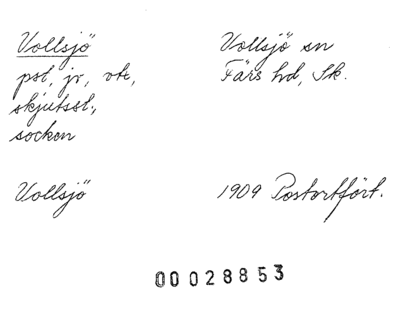 Vollsjö Vollsjö sn
pst, jv, vtr, Färs hd, Sk.
skjutsst.,
socken
Vollsjö 1909 Postortfört.
00028853